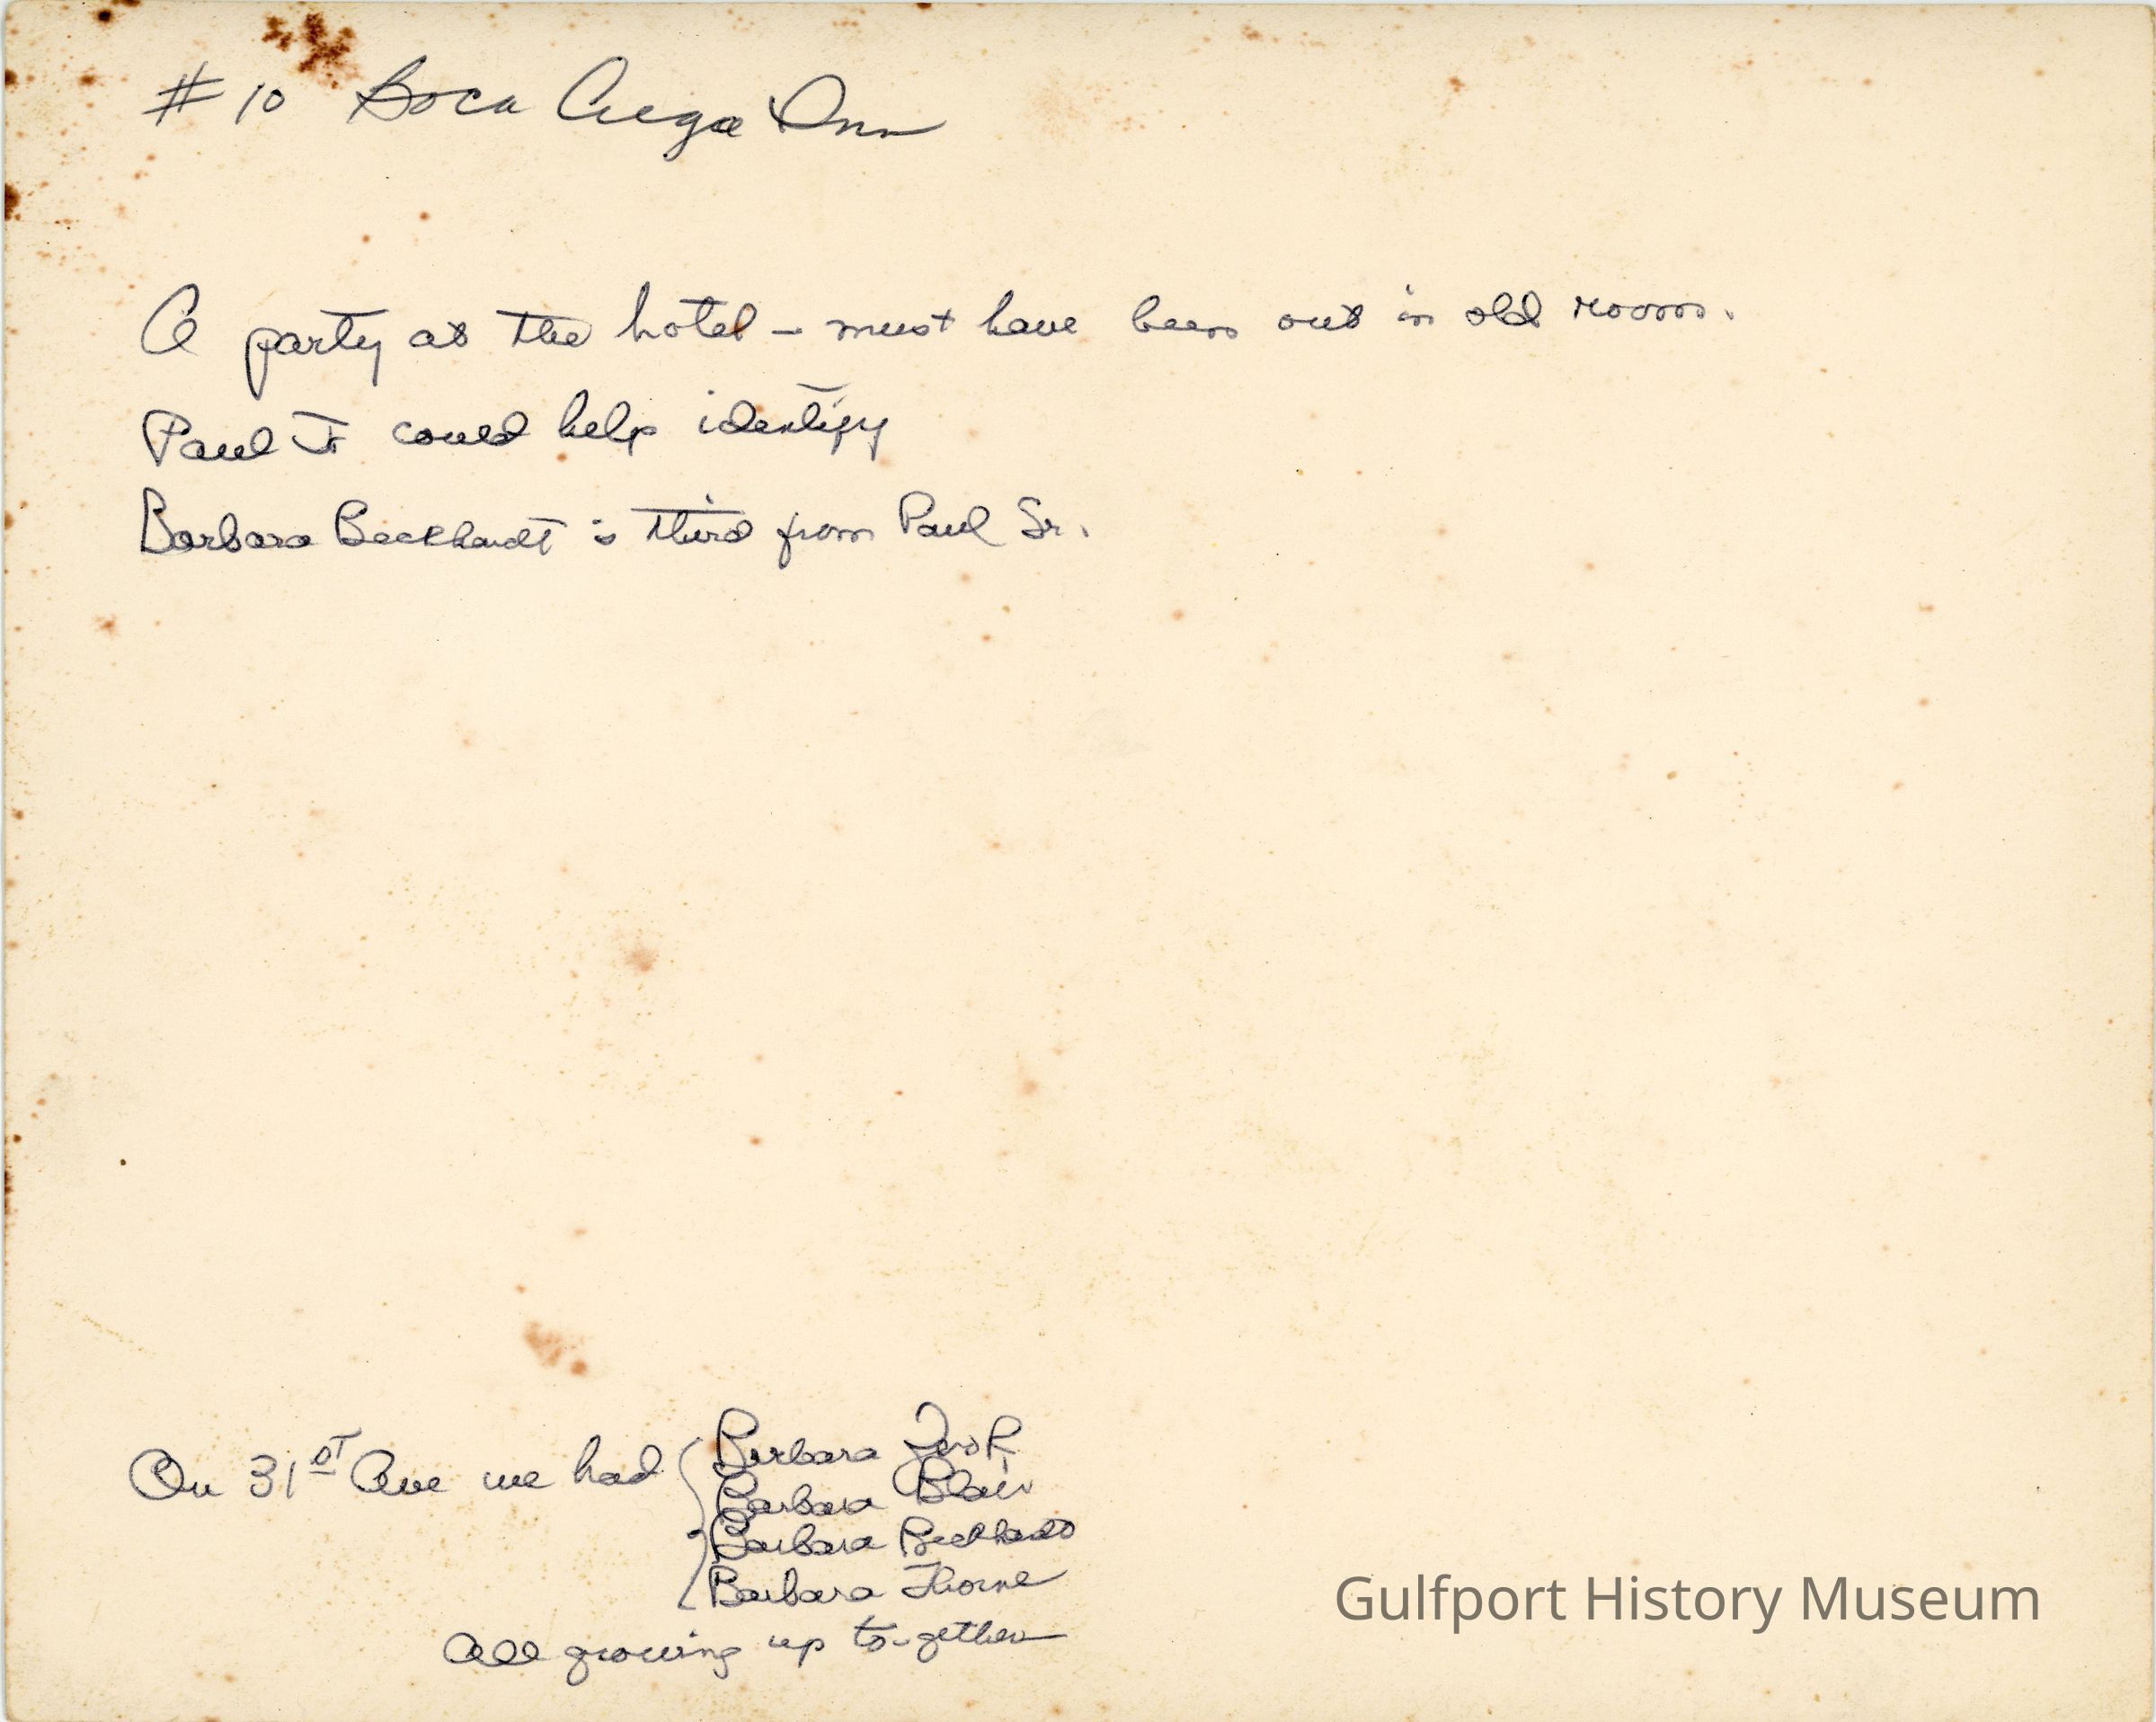 #10 Boca Ciega Inn
A party at the hotel – must have been out in old room.
Paul Jr could help identify
Barbara Beckhardt is third from Paul Sr.
On 31st Ave we had
Barbara
Barbara Blair
Barbara Beckhardt
Barbara Thorne
All growing up to-gether
Gulfport History Museum